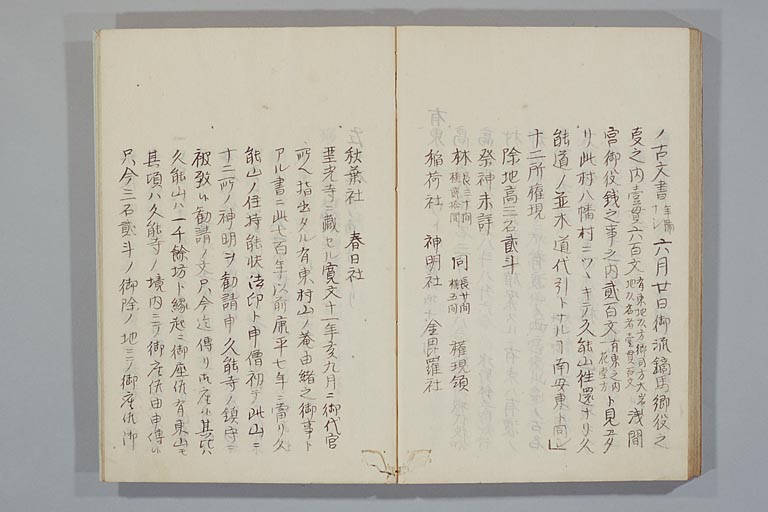 ノ古文書ナシ六月廿日御流鏑馬郷役之
事之内壹貫六百文 浅間
宮御役銭之事之内貳百文 ト見エタ
リ此村八幡村ニツヽキテ久能山往還ナリ久
能道ノ並木道代引トナルヿ南安東ト同シ
十二所権現
除地高三石貳斗
祭神未詳
林 長三十間 横貳拾間 同 長廿間 横五間 権現領
稲荷社 神明社 金毘羅社
秋葉社 春日社
里光寺ニ蔵セル寛文十一年亥九月ニ御代官
所ヘ指出タル有東村山ノ菴由緒之御事ト
アル書ニ此七百年以前康平七年ニ當リ久
能山ノ住持能快法印ト申僧初テ此山ニ
十二所ノ神明ヲ勧請申久能寺ノ鎮守ニ
被致候勧請ノ文只今迄傳リ御座候其比ハ
久能山ハ一千餘坊ト縁起ニ御座候有東山モ
其頃ハ久能寺ノ境内ニテ御座候由申傳候
只今三石貳斗ノ御除ノ地ニテ御座候御